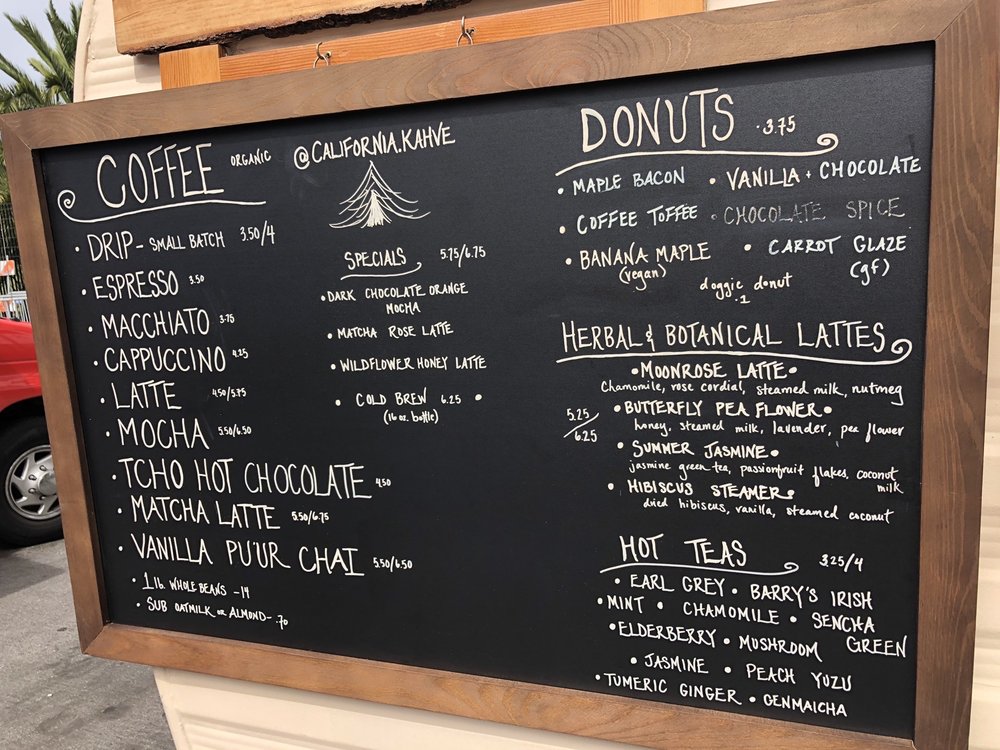 COFFEE ORGANIC
• DRIP - SMALL BATCH 3.50/4
• ESPRESSO 3.50
• MACCHIATO 3.75
• CAPPUCCINO 4.25
• LATTE 4.50/5.75
• MOCHA 5.50/6.50
• TCHO HOT CHOCOLATE 4.50
• MATCHA LATTE 5.50/6.75
• VANILLA PU'UR CHAI 5.50/6.50
• 1 lb. WHOLE BEANS - 14
• SUB OATMILK or ALMOND - .70
@CALIFORNIA.KAHVE
SPECIALS 5.75/6.75
• DARK CHOCOLATE ORANGE
MOCHA
• MATCHA ROSE LATTE
• WILDFLOWER HONEY LATTE
• COLD BREW 6.25 •
(16 oz. bottle)
DONUTS • 3.75
• MAPLE BACON • VANILLA + CHOCOLATE
• COFFEE TOFFEE • CHOCOLATE SPICE
• BANANA MAPLE • CARROT GLAZE
(vegan) (gf)
doggie donut
.1
HERBAL & BOTANICAL LATTES
• MOONROSE LATTE •
Chamomile, rose cordial, steamed milk, nutmeg
5.25/6.25
• BUTTERFLY PEA FLOWER •
honey, steamed milk, lavender, pea flower
• SUMMER JASMINE •
jasmine green tea, passionfruit flakes, coconut
milk
• HIBISCUS STEAMER •
dried hibiscus, vanilla, steamed coconut
HOT TEAS 3.25/4
• EARL GREY • BARRY'S IRISH
• MINT • CHAMOMILE • SENCHA
GREEN
• ELDERBERRY • MUSHROOM
• JASMINE • PEACH YUZU
• TUMERIC GINGER • GENMAICHA